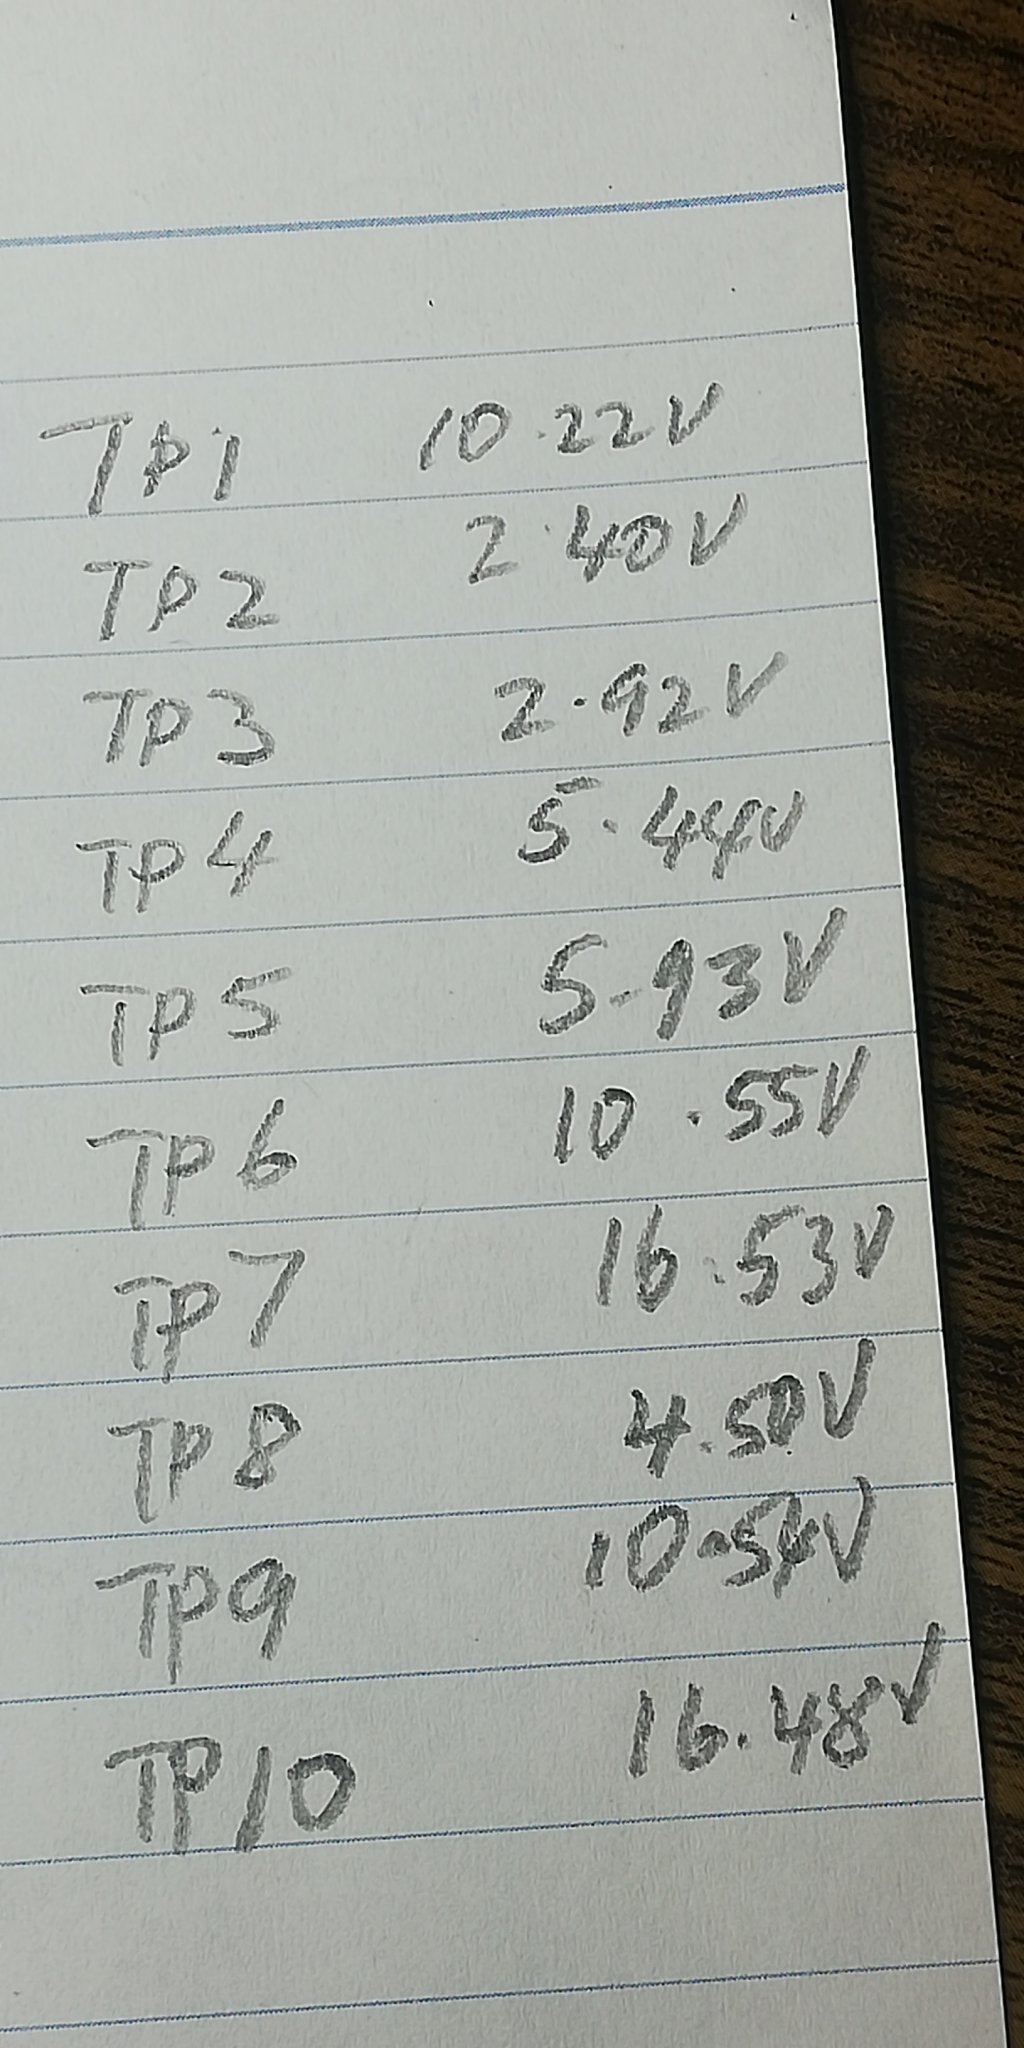 TP1 10.22V
TP2 2.40V
TP3 2.92V
TP4 5.44V
TP5 5.93V
TP6 10.55V
TP7 16.53V
TP8 4.50V
TP9 10.54V
TP10 16.48V